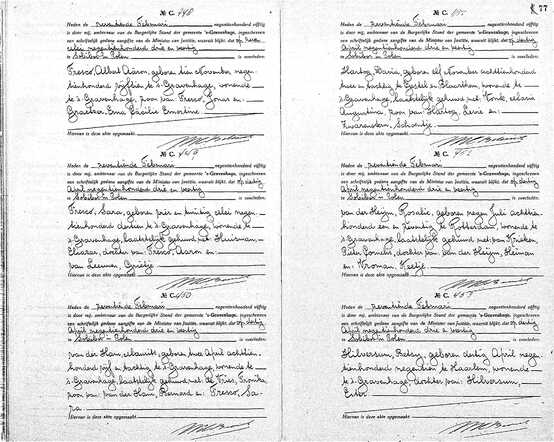 № C. 448
Heden de zeventiende Februari negentienhonderd vijftig
is door mij, ambtenaar van den Burgerlijken Stand der gemeente 's-Gravenhage, ingeschreven
een schriftelijk gedane aangifte van de Minister van Justitie, waaruit blijkt, dat op
negentienhonderd drie en veertig
te Sobibor in Polen is overleden:
Fresco, Albert Aäron, geboren tien November negen-
tienhonderd vijftien te 's-Gravenhage, wonende
te 's-Gravenhage, zoon van: Fresco, Jonas en
Emortine.
Hiervan is deze akte opgemaakt.
№ C. 449
Heden de zeventiende Februari negentienhonderd vijftig
is door mij, ambtenaar van den Burgerlijken Stand der gemeente 's-Gravenhage, ingeschreven
een schriftelijk gedane aangifte van de Minister van Justitie, waaruit blijkt, dat op dertig
April negentienhonderd drie en veertig
te Sobibor in Polen is overleden:
Fresco, Sara, geboren vier en twintig Mei negen-
tienhonderd dertien te 's-Gravenhage, wonende te
's-Gravenhage, laatstelijk gehuwd met: Huisman,
Eliazar, dochter van: Fresco, Aaron en
van Leeuwen, Grietje.
Hiervan is deze akte opgemaakt.
№ C. 450
Heden de zeventiende Februari negentienhonderd vijftig
is door mij, ambtenaar van den Burgerlijken Stand der gemeente 's-Gravenhage, ingeschreven
een schriftelijk gedane aangifte van de Minister van Justitie, waaruit blijkt, dat op dertig
April negentienhonderd drie en veertig
te Sobibor in Polen is overleden:
van der Ham, Maurits, geboren twee April achttien-
honderd vijf en tachtig te 's-Gravenhage, wonende te
's-Gravenhage, laatstelijk gehuwd met: de Vries,
zoon van: van der Ham, Bernard en: Fresco, Sa-
ra.
Hiervan is deze akte opgemaakt.
77
№ C.
Heden de zeventiende Februari negentienhonderd vijftig
is door mij, ambtenaar van den Burgerlijken Stand der gemeente 's-Gravenhage, ingeschreven
een schriftelijk gedane aangifte van de Minister van Justitie, waaruit blijkt, dat op dertig
April negentienhonderd drie en veertig
te Sobibor in Polen is overleden:
Hartog, geboren elf November achttienhonderd
twee en tachtig te Gestel en Blaarthem, wonende te
's-Gravenhage, laatstelijk gehuwd met: Vonk, Maria
Augustina, zoon van: Hartog, Levie en:
Zwanenstein, Schoontje.
Hiervan is deze akte opgemaakt.
№ C. 452
Heden de zeventiende Februari negentienhonderd vijftig
is door mij, ambtenaar van den Burgerlijken Stand der gemeente 's-Gravenhage, ingeschreven
een schriftelijk gedane aangifte van de Minister van Justitie, waaruit blijkt, dat op dertig
April negentienhonderd drie en veertig
te Sobibor in Polen is overleden:
van der Heijm, Rosalie, geboren negen Juli achttien-
honderd een en zeventig te Rotterdam, wonende te
's-Gravenhage, laatstelijk gehuwd met: van Krieken,
Pieter Cornelis, dochter van: van der Heijm, Heiman
en Vroman, Keetje.
Hiervan is deze akte opgemaakt.
№ C. 453
Heden de zeventiende Februari negentienhonderd vijftig
is door mij, ambtenaar van den Burgerlijken Stand der gemeente 's-Gravenhage, ingeschreven
een schriftelijk gedane aangifte van de Minister van Justitie, waaruit blijkt, dat op dertig
April negentienhonderd drie en veertig
te Sobibor in Polen is overleden:
Hilversum, Betsy, geboren dertig April nege-
tienhonderd negentien te Haarlem, wonende
te 's-Gravenhage, dochter van: Hilversum,
Ester
Hiervan is deze akte opgemaakt.